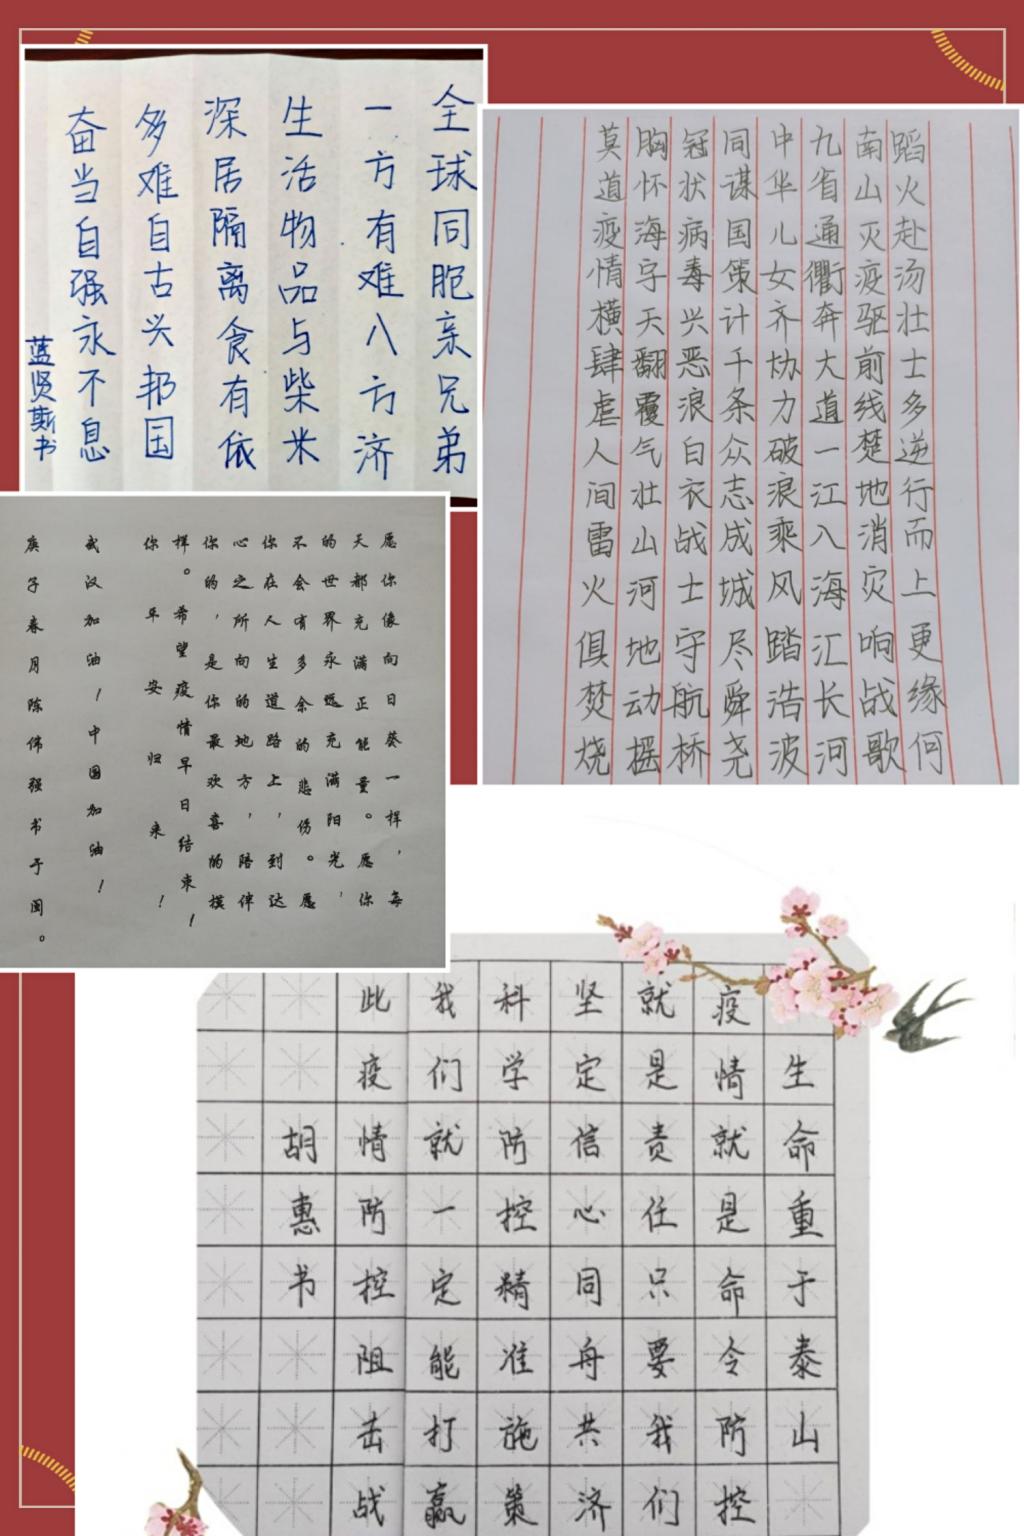 全球同胞亲兄弟
一方有难八方济
生活物品与柴米
深居隔离食有依
多难自古兴邦国
奋当自强永不息
蓝贤斯书
蹈火赴汤壮士多逆行而上更缘何
南山灭疫驱前线楚地消灾响战歌
九省通衢奔大道一江入海汇长河
中华儿女齐协力破浪乘风踏浩波
同谋国策计千条众志成城尽舜尧
冠状病毒兴恶浪白衣战士守航桥
胸怀海宇天翻覆气壮山河地动摇
莫道疫情横肆虐人间雷火俱焚烧
愿你像向日葵一样，每
天都充满正能量。愿你
的世界永远充满阳光，
不会有多余的悲伤。愿
你在人生道路上，到达
心之所向的地方，陪伴
你的，是你最欢喜的模
样。希望疫情早日结束！
你平安归来！
武汉加油！中国加油！
庚子春月陈伟强书于闽。
生命重于泰山
疫情就是命令防控
就是责任只要我们
坚定信心同舟共济
科学防控精准施策
我们就一定能打赢
此疫情防控阻击战
胡惠书